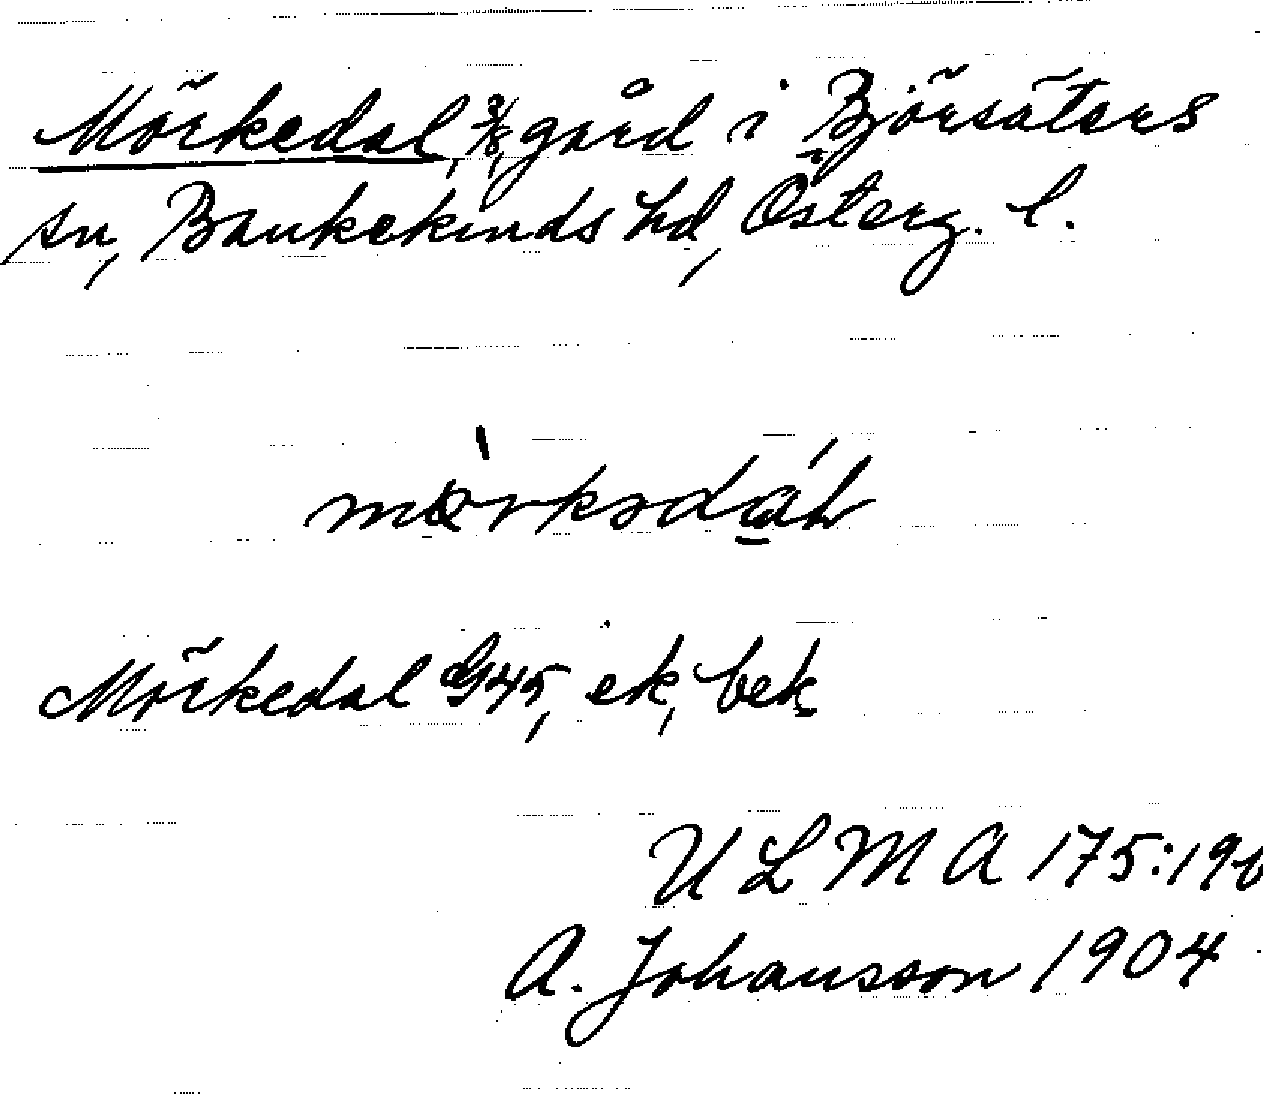 Mörkedal, 3/8, gård i Björsäters
sn, Bankekinds hd, Österg. l.
Mörkedal G45, ek, bek
U L M A 175:19
A. Johansson 1904